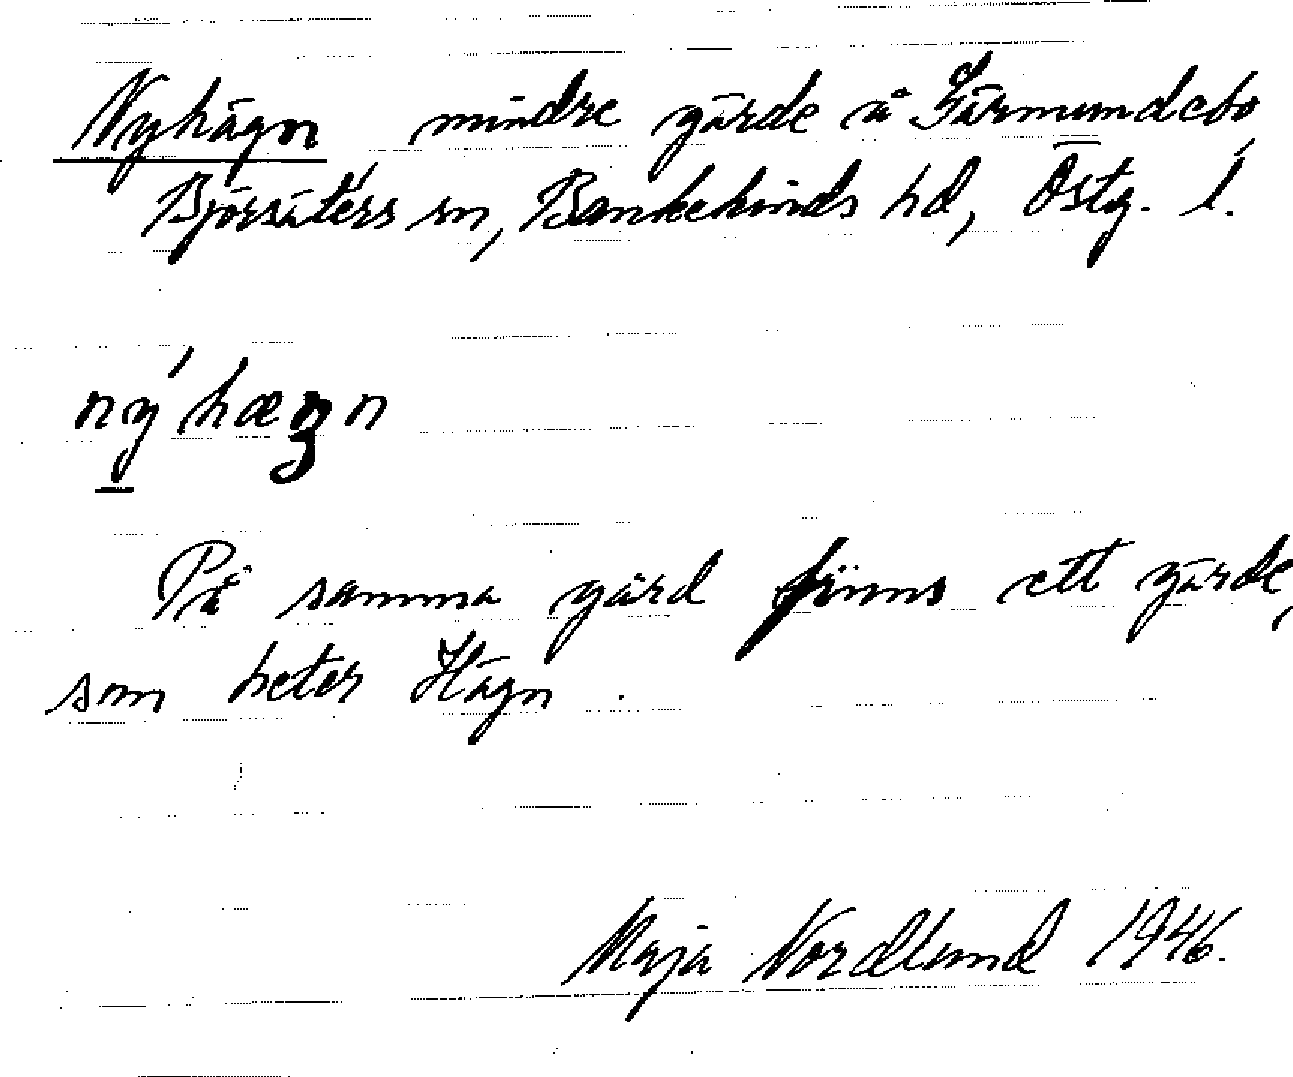 Nyhägn mindre gärde å Gärmundebo
Björsäters sn, Bankekinds hd, Östg. l.
nýhæŋn
På samma gård finns ett gärde,
som heter Hägn.
Maja Nordlund 1946.